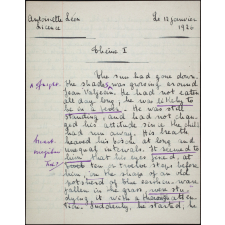 Antoinette Léon
Le 13 janvier
1920
Thème I
The sun had gone down.
The shades was growing around
Jean Valjean. He had not eaten
all day long; he was likely to
be in a fever. He was still
standing, and had not chan-
ged his attitude since the
had run away. His breath
heaved his bosom at long and
unequal intervals. It seemed to
him that his eyes fixed, at
ten or twelve steps before
him, in the shape of an old
of the earthen ware
fallen in the grass were stu-
dying it with a
tion. Suddenly, he started, he